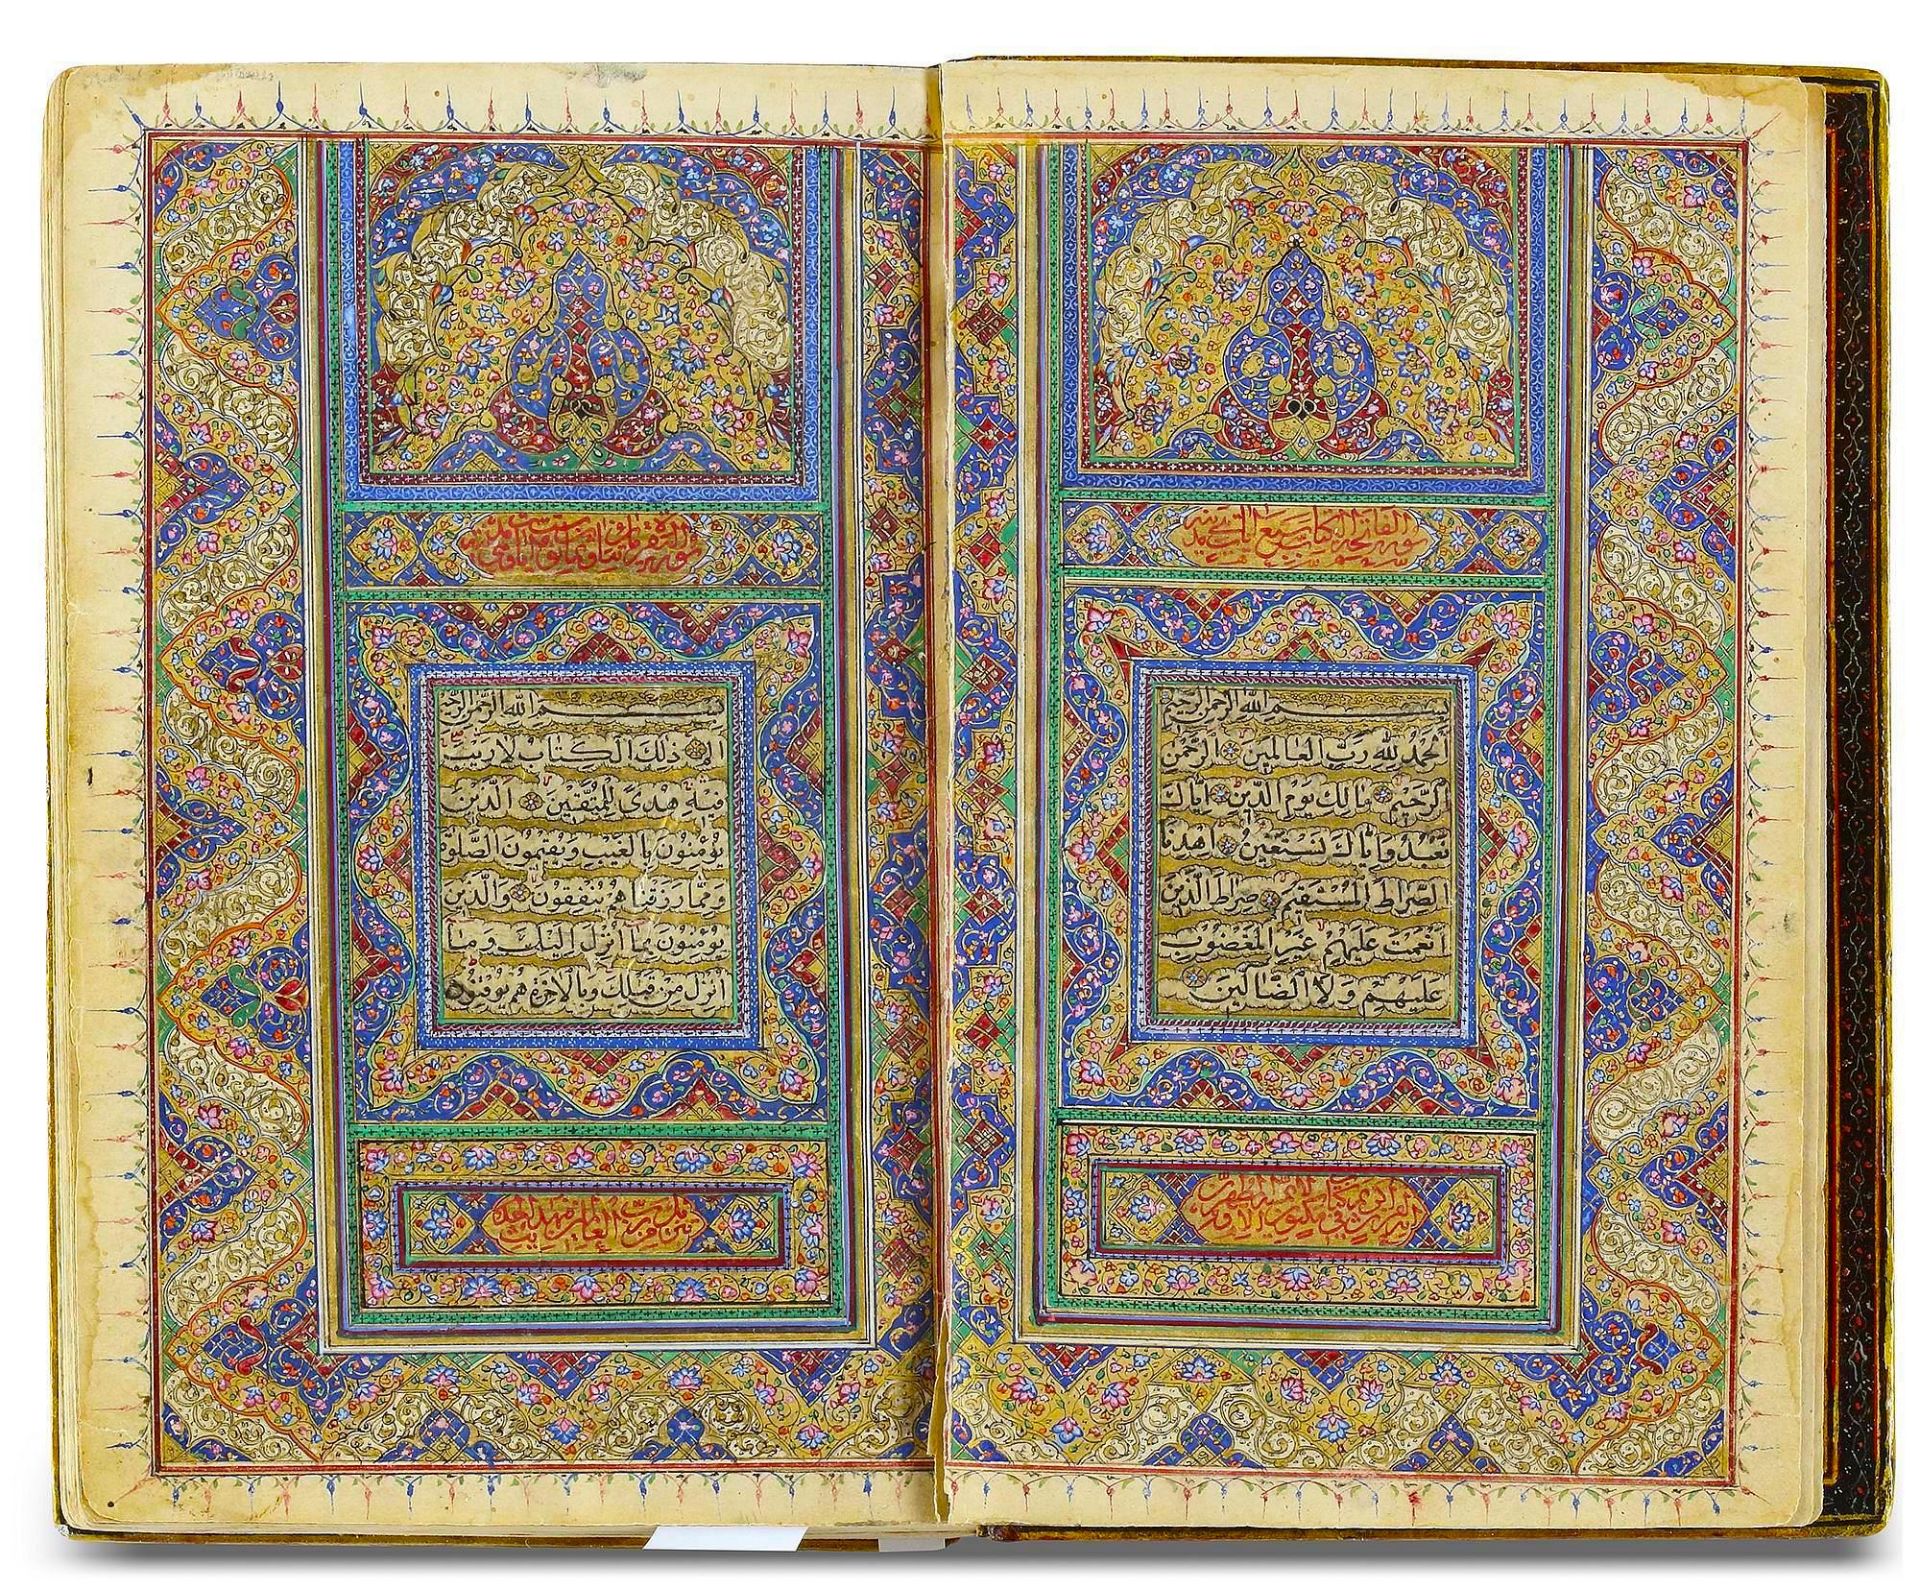 سورة الفاتحة الكتاب سبع ايات مدنية
بسم الله الرحمن الرحيم
اَلْحَمْدُ لِلّٰهِ رَبِّ الْعَالَمِينَ الرَّحْمٰنِ
الرَّحِيمِ مَالِكِ يَوْمِ الدِّينِ اِيَّاكَ
نَعْبُدُ وَاِيَّاكَ نَسْتَعِينُ اِهْدِنَا
الصِّرَاطَ الْمُسْتَقِيمَ صِرَاطَ الَّذِينَ
اَنْعَمْتَ عَلَيْهِمْ غَيْرِ الْمَغْضُوبِ
عَلَيْهِمْ وَلَا الضَّالِّينَ
انه لقران كريم في كتاب مكنون لا يمسه الا المطهرون
سورة البقرة
بسم الله الرحمن الرحيم
الٓمٓ ذٰلِكَ الْكِتَابُ لَا رَيْبَ
فِيهِ هُدًى لِلْمُتَّقِينَ الَّذِينَ
يُؤْمِنُونَ بِالْغَيْبِ وَيُقِيمُونَ الصَّلٰوةَ
وَمِمَّا رَزَقْنَاهُمْ يُنْفِقُونَ وَالَّذِينَ
يُؤْمِنُونَ بِمَا اُنْزِلَ اِلَيْكَ وَمَا
اُنْزِلَ مِنْ قَبْلِكَ وَبِالْاٰخِرَةِ هُمْ يُوقِنُونَ
تنزيل من رب العالمين